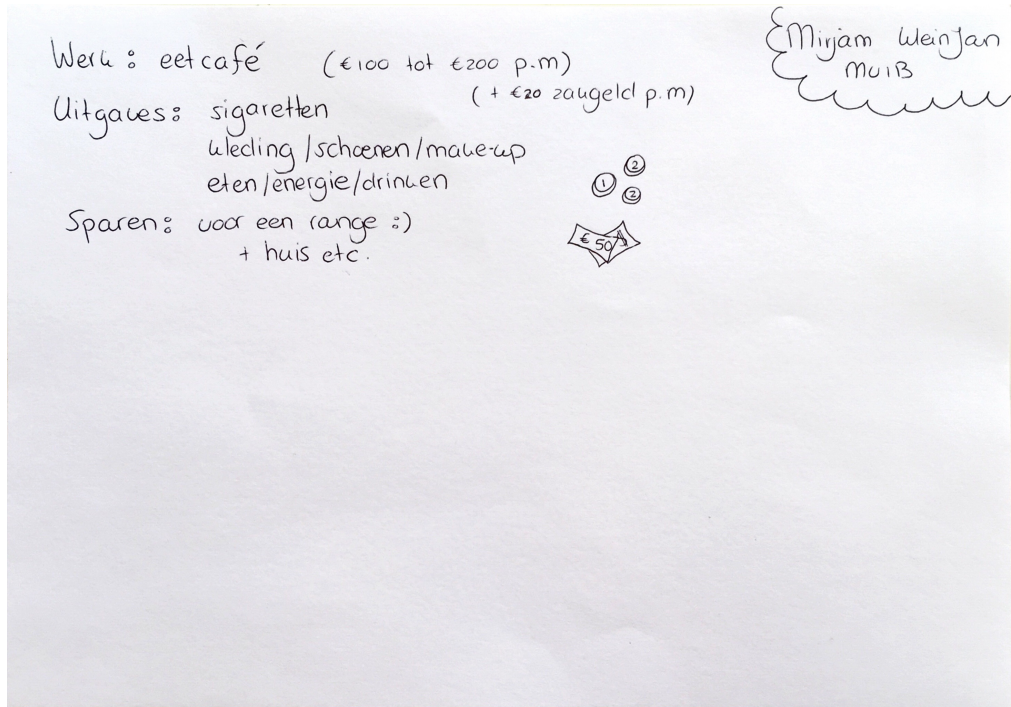 Mirjam Weinjan
MUIB
Werk : eetcafé (€100 tot €200 p.m)
(+ €20 zakgeld p.m)
Uitgaves : sigaretten
kleding / schoenen / make-up
eten / energie / drinken
Sparen : voor een range :)
+ huis etc.
1
2
2
€50